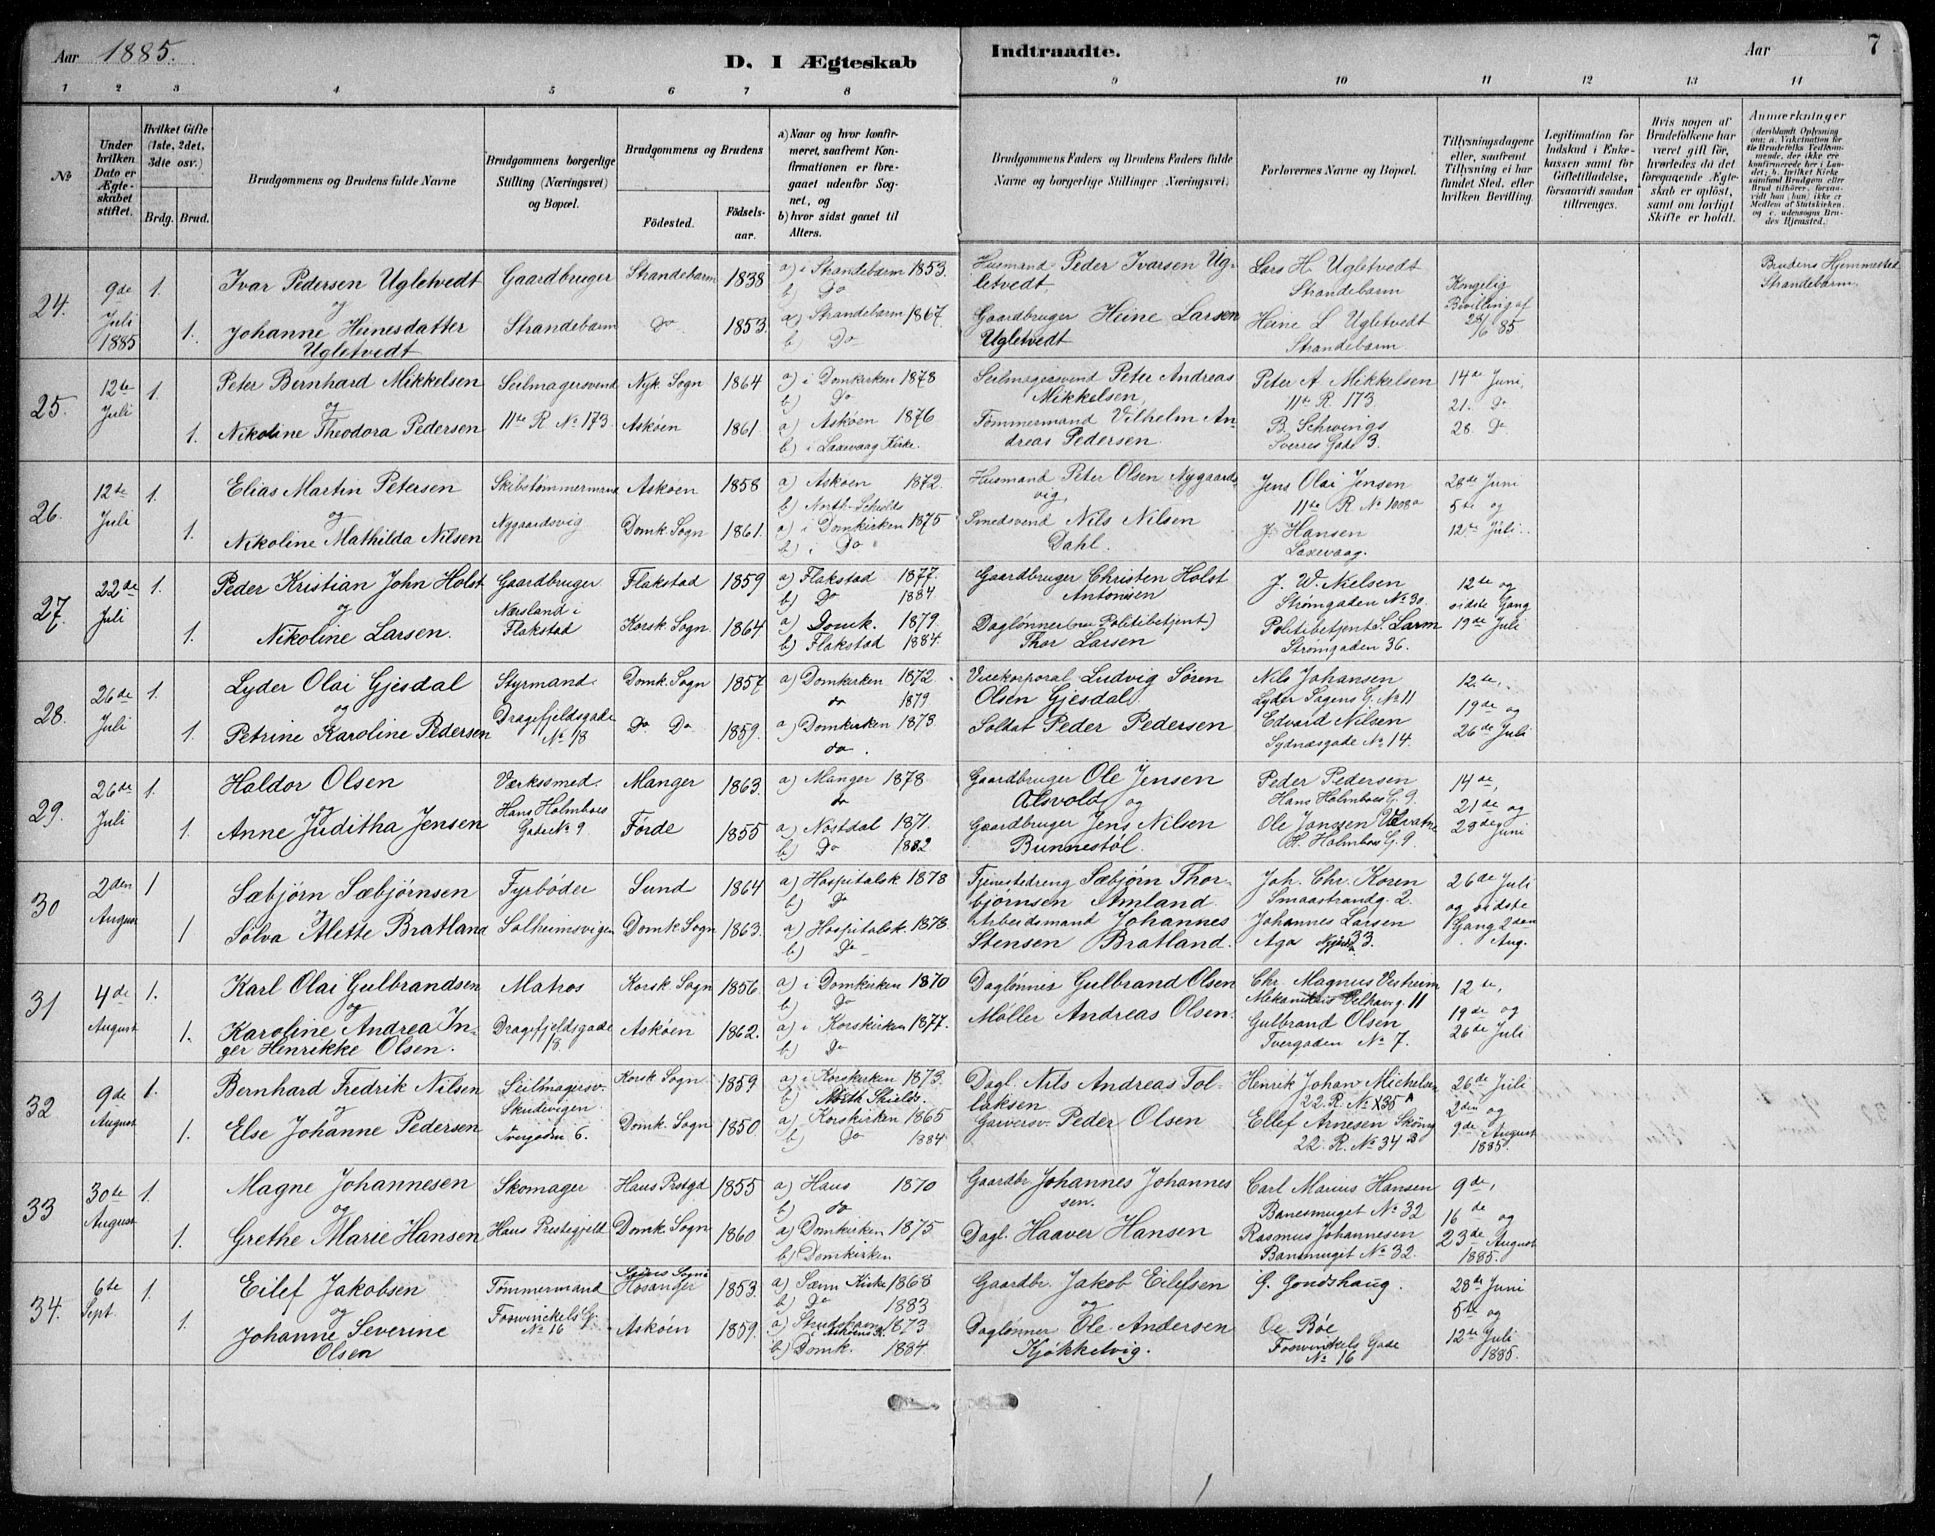 Aar 1885.
D. I Ægteskab
Indtraadte.
Aar
7
1 2 3 4 5 6 7 8 9 10 11 12 13 14
No
Under hvilken Dato er Ægteskabet stiftet.
Hvilket Gifte (1ste, 2det, 3die osv.)
Brdg. Brud.
Brudgommens og Brudens fulde Navne
Brudgommens borgerlige Stilling (Næringsvei) og Bopæl.
Brudgommens og Brudens
Födested.
Födsels-aar.
a) Naar og hvor konfirmeret, saafremt Konfirmationen er foregaaet udenfor Sognet, og
b) hvor sidst gaaet til Alters.
Brudgommens Faders og Brudens Faders fulde Navne og borgerlige Stillinger (Næringsvei).
Forlovernes Navne og Bopæl.
Tillysningsdagene eller, saafremt Tillysning ei har fundet Sted, efter hvilken Bevilling.
Legitimation for Indskud i Enkekassen samt for Giftetilladelse, forsaavidt saadan tiltrænges.
Hvis nogen af Brudefolkene har været gift för, hvorledes da det foregaaende Ægteskab er oplöst, samt om lovligt Skifte er holdt.
Anmærkninger
24. 9de Juli 1885 1. 1.
Ivar Pedersen Ugletvedt
og
Johanne Heinesdatter
Ugletvedt
Gaardbruger
Strandebarm
Strandebarm 1838
Do 1853.
a) i Strandebarm 1853.
b) Do
a) Strandebarm 1867.
b) Do
Husmand Peder Ivarsen Ug-
letvedt
Gaardbruger Heine Larsen
Ugletvedt
Lars H. Ugletvedt
Strandebarm
Heine L Ugletvedt
Strandebarm.
Kongelig
Bevilling af
Brudens Hjemmested
Strandebarm.
25. 12te Juli 1. 1.
Peter Bernhard Mikkelsen
og
Nikoline Theodora Pedersen
Seilmagersvend
11te R No 173
Nyk. Sogn 1864
Askøen 1861
a) i Domkirken 1878
b) Do
a) Askøen 1876
b) i Laxevaag Kirke.
Seilmagersvend Peter Andreas
Mikkelsen,
Tømmermand Vilhelm An-
dreas Pedersen.
Peter A Mikkelsen
11te R. 173.
B. Schwings
Sverres Gade 3.
14de Juni,
21. Do
28. Do
26. 12te Juli 1. 1.
Elias Martin Petersen
og
Nikoline Mathilda Nilsen
Skibstømmermand
Nygaardsvig
Askøen 1858
Domk. Sogn 1861.
a) Askøen 1872.
b) North-Schields
a) i Domkirken 1875
b) i Do
Husmand Peter Olsen Nygaards-
vig,
Smedsvend Nils Nilsen
Dahl.
Jens Olai Jensen
11te R No 1008a
J. Hansen
Laxevaag.
28de Juni
5te og
12te Juli.
27. 22de Juli 1. 1.
Peder Kristian John Holst
og
Nikoline Larsen.
Gaardbruger
Næsland i
Flakstad
Flakstad 1859
Korsk. Sogn. 1864
a) Flakstad 1877.
b) Do 1884.
a) Domk. 1879.
b) Flakstad 1884.
Gaardbruger Christen Holst
Antonsen
Thor Larsen
J. W. Nielsen
Strømgaden No 30.
Strømgaden 36.
12te og
sidste Gang
19de Juli
28. 26de Juli 1. 1.
Lyder Olai Gjesdal
og
Petrine Karoline Pedersen
Styrmand.
Dragefjeldsgade
No 18
Domk. Sogn 1857
Do Do 1859.
a) Domkirken 1872
do 1879
a) Domkirken 1873
do.
Vicekorporal Ludvig Søren
Olsen Gjesdal
Soldat Peder Pedersen
Nils Johansen
Lyder Sagens G. No 11
Edvard Nilsen
Sydnæsgade No 14.
12te,
19de og
26de Juli
29. 26de Juli 1. 1.
Haldor Olsen
og
Anne Juditha Jensen
Værkssmed.
Hans Holmboes
Gade No 9.
Manger 1863.
Førde 1855
a) Manger 1878.
do
a) Nostdal 1871.
b) Do 1882
Gaardbruger Ole Jensen
Alsvold og
Gaardbruger Jens Nilsen
Bunnestøl.
Peder Pedersen
Hans Holmboes G. 9.
Ole Janssen
H. Holmboes G. 9.
14de,
21de og
28de Juni
30 2den August 1 1
Sæbjörn Sæbjørnsen
Sølva Alette Bratland
Fyrbøder
Solheimsvigen
Sund 1864
Domk. Sogn 1863.
a) Hospitalsk 1878
b) Do
a) Hospitalsk 1878.
b) Do
Tjenestedreng Sæbjørn Thor-
bjørnsen Amland.
Arbeidsmand Johannes
Stensen Bratland.
Joh. Chr. Koren
Smaastrandg. 2.
Johannes Larsen
Aga 33.
26de Juli
og sidste
Gang 2den
Aug.
31 4de August 1. 1.
Karl Olai Gulbrandsen
og
Karoline Andrea In-
ger Henrikke Olsen.
Matros
Dragefjeldsgade
18.
Korsk. Sogn 1856.
Askøen 1862.
a) i Domkirken 1870
b) Do
a) i Korskirken 1877.
b) Do
Daglønnes Gulbrand Olsen
Møller Andreas Olsen.
Chr. Magnus Visheim
Gulbrand Olsen
Tvergaden No 7.
12te,
19de og
26de Juli
32 9de August 1. 1.
Bernhard Fredrik Nilsen
og
Else Johanne Pedersen
Seilmagersv.
Skudevigen.
Tvergaden 6.
Korsk. Sogn. 1859
Domk. Sogn 1850
a) i Korskirken 1873.
b) North Shields.
a) Korskirken 1865
b) Do 1884.
Dagl. Nils Andreas Tol-
laksen
Garversv. Peder Olsen
Henrik Johan Michelsen
22. R. No 35 A
Ellef Arnesen
22. R. No 34 B
26de Juli
2den og
9de August
1885.
33 30te August 1. 1.
Magne Johannesen
og
Grethe Marie Hansen
Skomager
Haus Prestegjeld
Haus Prstgd 1855
Domk. Sogn 1860
a) Haus 1870
b) do
a) Domkirken 1875
b) Domkirken
Gaardbr Johannes Johannes
sen.
Dagl. Haaver Hansen
Carl Marius Hansen
Banesmuget No 32
Rasmus Johannesen
Banesmuget No 32.
9de,
16de og
23de August
1885.
34. 6te Sept. 1. 1.
Eilef Jakobsen
og
Johanne Severine
Olsen
Tømmermand
Foswinckels G.
No 16
Hosanger 1853.
Askøen 1859.
a) Sæm Kirke 1868
b) Do 1883
a) 1873
b) Domk. 1884.
Gaardbr. Jakob Eilefsen
og
Daglønner Ole Andersen
Kjøkkelvig.
G. Gondshaug.
Oe Bøe
Foswinckels Gade
No 16
28de Juni
5te og
12te Juli
1885.